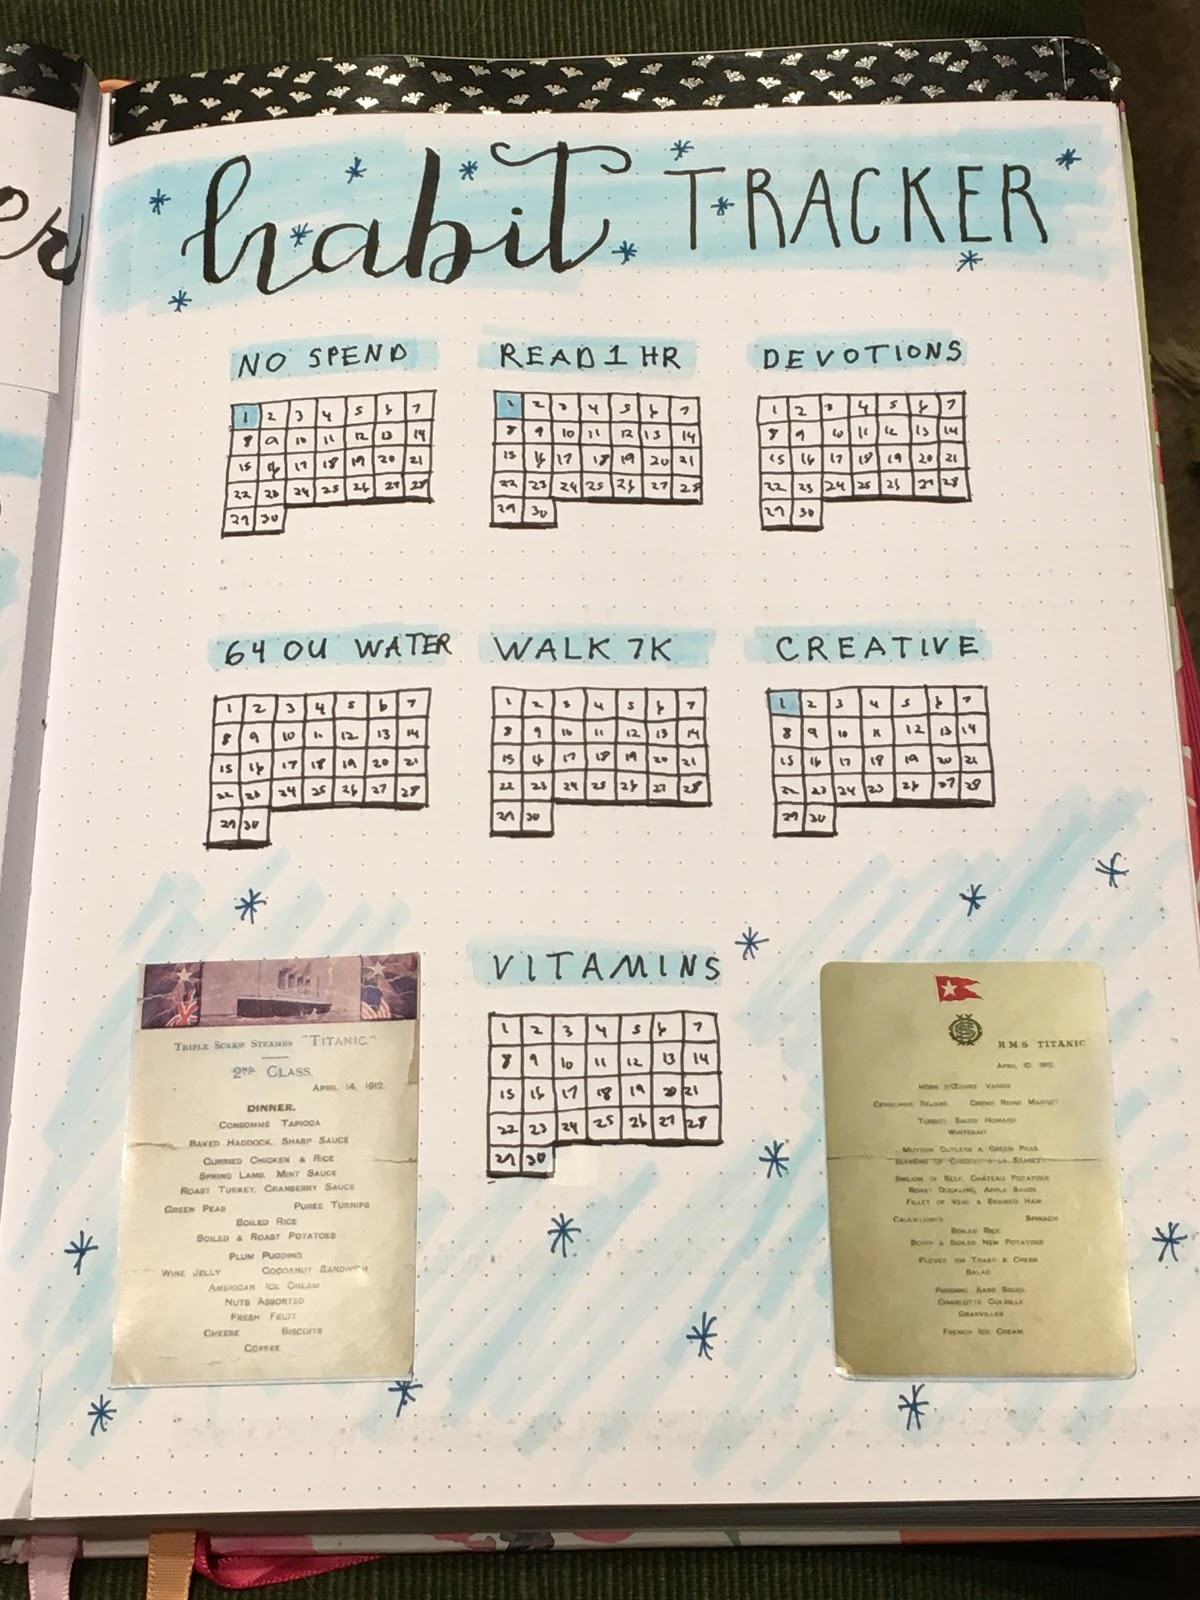 er
habit TRACKER
NO SPEND
1 2 3 4 5 6 7
8 9 10 11 12 13 14
15 16 17 18 19 20 21
22 23 24 25 26 27 28
29 30
READ 1 HR
1 2 3 4 5 6 7
8 9 10 11 12 13 14
15 16 17 18 19 20 21
22 23 24 25 26 27 28
29 30
DEVOTIONS
1 2 3 4 5 6 7
8 9 10 11 12 13 14
15 16 17 18 19 20 21
22 23 24 25 26 27 28
29 30
64 OU WATER
1 2 3 4 5 6 7
8 9 10 11 12 13 14
15 16 17 18 19 20 21
22 23 24 25 26 27 28
29 30
WALK 7K
1 2 3 4 5 6 7
8 9 10 11 12 13 14
15 16 17 18 19 20 21
22 23 24 25 26 27 28
29 30
CREATIVE
1 2 3 4 5 6 7
8 9 10 11 12 13 14
15 16 17 18 19 20 21
22 23 24 25 26 27 28
29 30
VITAMINS
1 2 3 4 5 6 7
8 9 10 11 12 13 14
15 16 17 18 19 20 21
22 23 24 25 26 27 28
29 30
TRIPLE SCREW STEAMER "TITANIC."
2ND CLASS
APRIL 14, 1912.
DINNER.
CONSOMMÉ TAPIOCA
BAKED HADDOCK, SHARP SAUCE
CURRIED CHICKEN & RICE
SPRING LAMB, MINT SAUCE
ROAST TURKEY, CRANBERRY SAUCE
GREEN PEAS PUREE TURNIPS
BOILED RICE
BOILED & ROAST POTATOES
PLUM PUDDING
WINE JELLY COCOANUT SANDWICH
AMERICAN ICE CREAM
NUTS ASSORTED
FRESH FRUIT
CHEESE BISCUITS
COFFEE
R.M.S. TITANIC
APRIL 10, 1912.
HORS D'ŒUVRE VARIES
CONSOMMÉ RÉJANE CRÊME REINE MARGOT
TURBOT, SAUCE HOMARD
WHITEBAIT
MUTTON CUTLETS & GREEN PEAS
SUPRÊME OF CHICKEN À LA STANLEY
SIRLOIN OF BEEF, CHÂTEAU POTATOES
ROAST DUCKLING, APPLE SAUCE
FILLET OF VEAL & BRAISED HAM
CAULIFLOWER SPINACH
BOILED RICE
BOILED NEW POTATOES
PLOVER ON TOAST & CRESS
SALAD
PUDDING SANS SOUCI
CHARLOTTE COLVILLE
GRANVILLES
FRENCH ICE CREAM